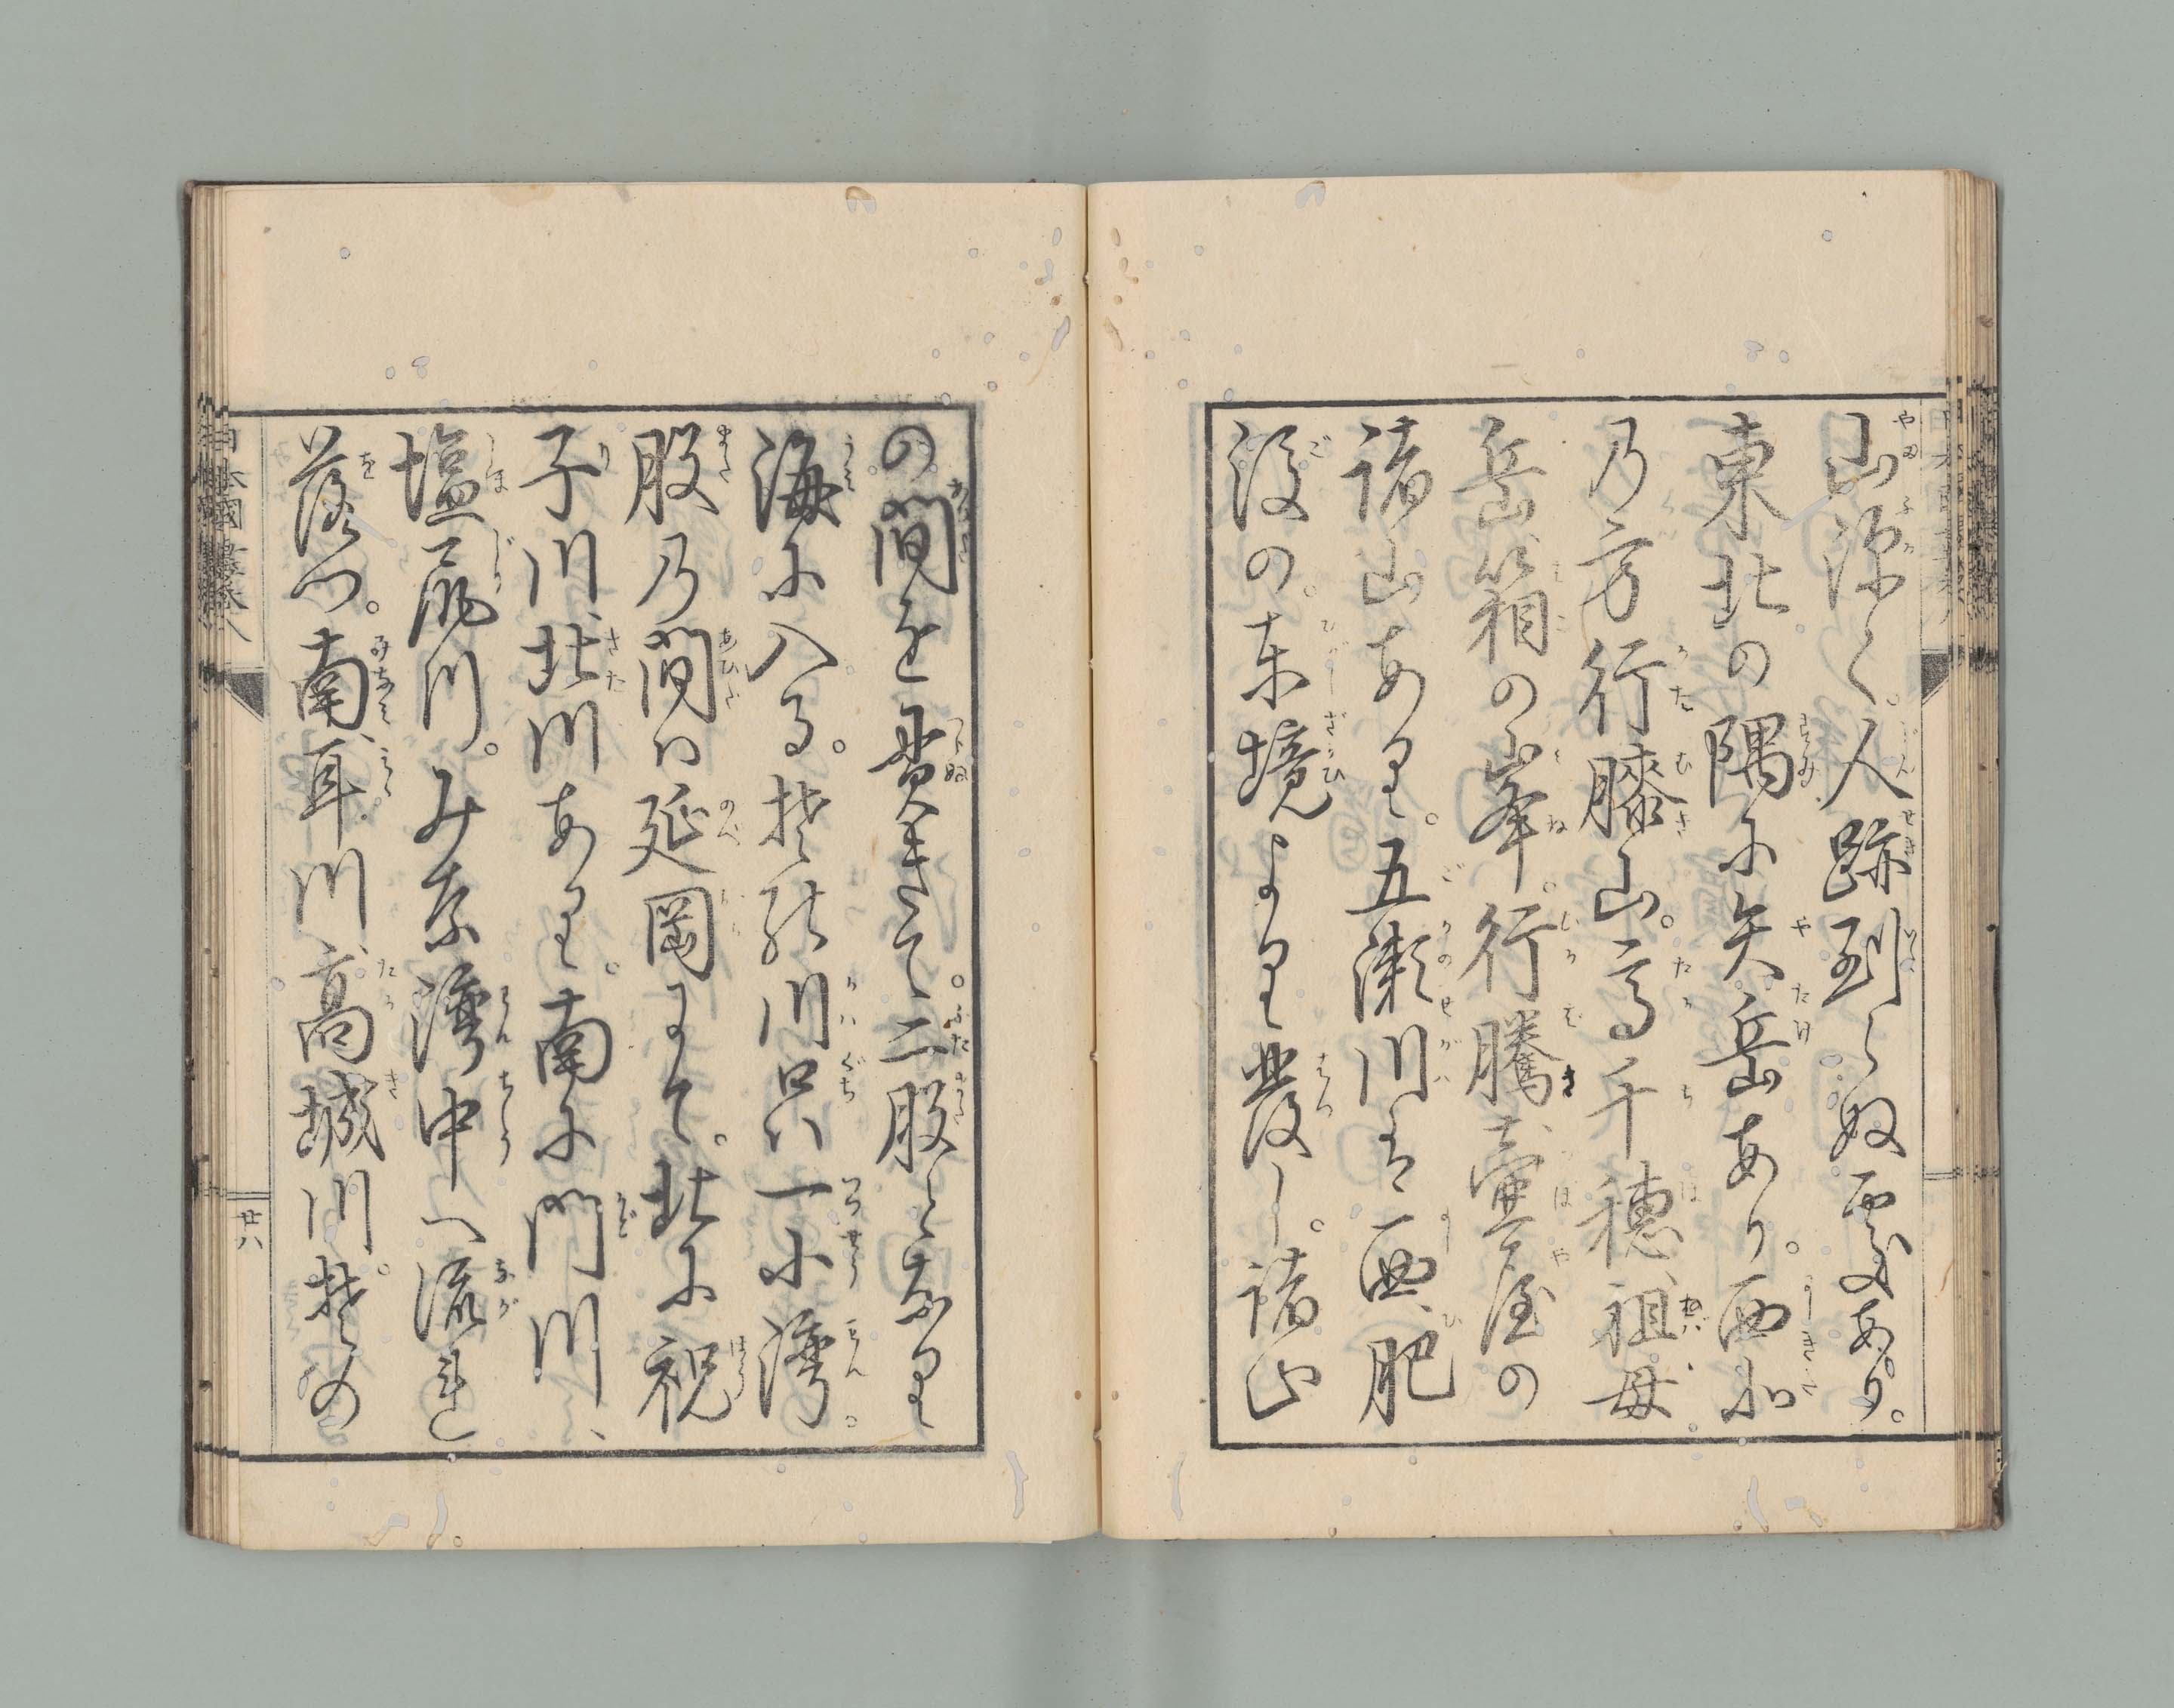 山深く。人跡到らぬ処あり。
東北の隅に矢岳あり。西北
の方行膝山。高千穂、祖母
岳、箱の峯。行騰、壷屋の
諸山あり。五瀬川は、西、肥
後の。東境より発し。諸山
の間を貫きて。二股となり
海に入る。其 川口は一小湾。
股の間は延岡にて。北に祝
子川、北川あり。南に門川、
塩尻川。みな湾中へ流れ
落つ。南、耳川、高城川。其の
日本國盡 巻八
廿八